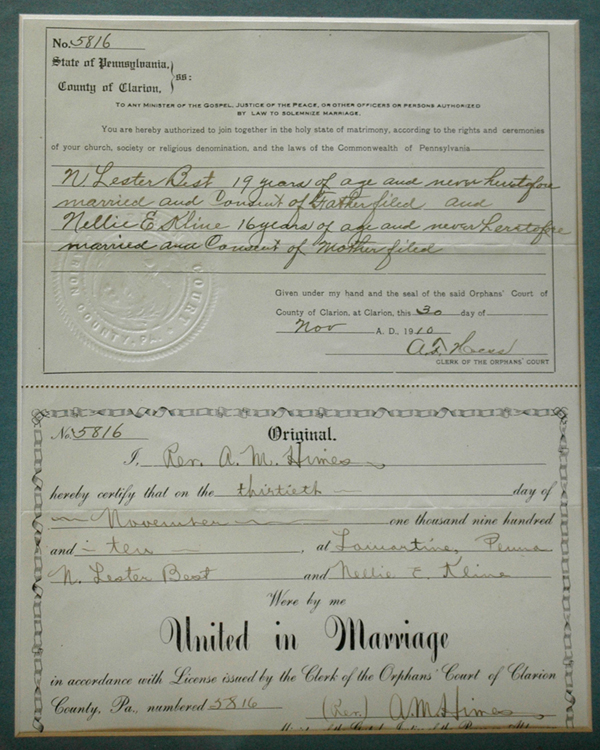 No. 5816
State of Pennsylvania,
County of Clarion.
ss:
TO ANY MINISTER OF THE GOSPEL, JUSTICE OF THE PEACE, OR OTHER OFFICERS OR PERSONS AUTHORIZED
BY LAW TO SOLEMNIZE MARRIAGE.
You are hereby authorized to join together in the holy state of matrimony, according to the rights and ceremonies
of your church, society or religious denomination, and the laws of the Commonwealth of Pennsylvania
N Lester Best 19 years of age and never heretofore
married and Consent of Father filed and
Nellie E Kline 16 years of age and never heretofore
married and Consent of Mother filed
COURT
CLARION COUNTY, PA.
Given under my hand and the seal of the said Orphans' Court of
County of Clarion, at Clarion, this 30 day of
Nov A. D., 1910
CLERK OF THE ORPHANS' COURT
No. 5816 Original.
I, Rev. A. M. Himes
hereby certify that on the thirtieth day of
November one thousand nine hundred
and ten, at Lamartine, Penna
N. Lester Best and Nellie E. Kline
Were by me
United in Marriage
in accordance with License issued by the Clerk of the Orphans' Court of Clarion
County, Pa., numbered 5816 (Rev.) A. M. Himes